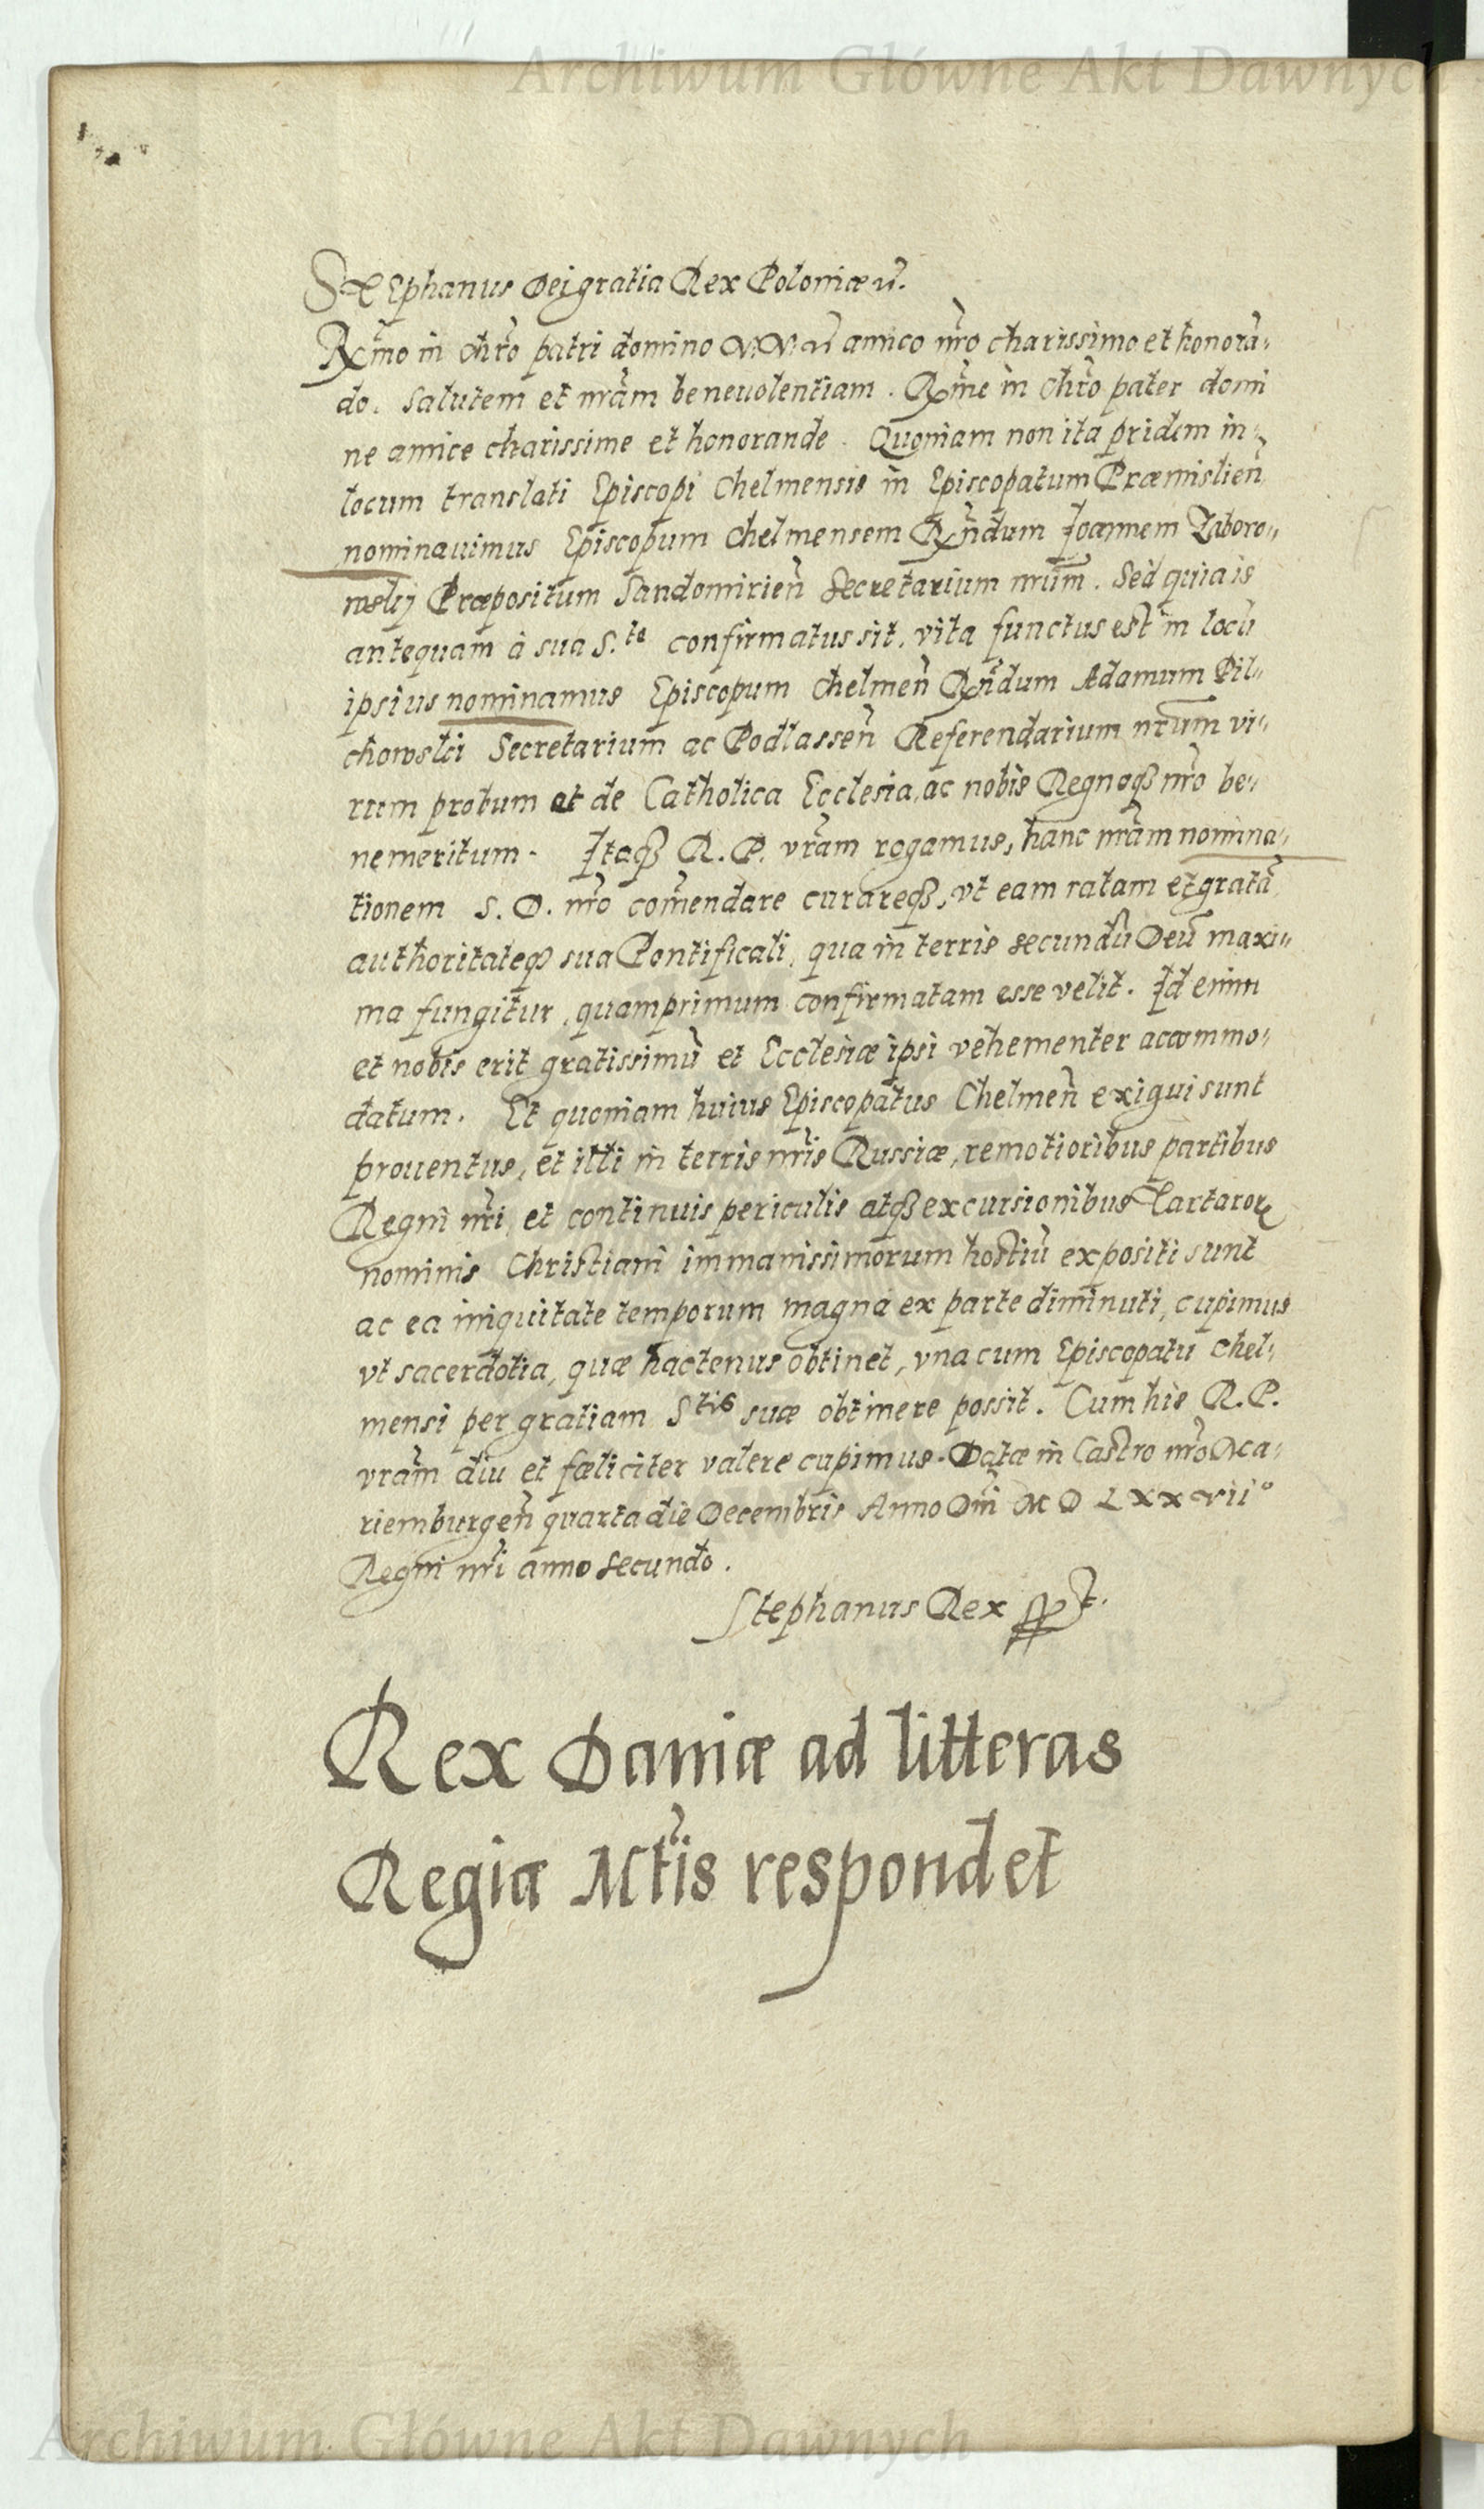 Archiwum Główne Akt Dawnych
Stephanus Dei gratia Rex Poloniæ
Rx̃mo in chr̃o patri domino amico nr̃o charissimo et honorã„
do. Salutem et nr̃am beneuolentiam. Rx̃me in chr̃o pater domi
ne amice charissime et honorande. Quoniam non ita pridem in„
locum translati Episcopi Chelmensis in Episcopatum Præmislien̄
nominauimus Episcopum Chelmensem Rñdum Joannem Zaboro„
wskij Præpositum Sandomirien̄ Secretarium nrũm. Sed quia is
antequam à sua S.te confirmatus sit, vita functus est in locũ
ipsius nominamus Episcopum Chelmen̄ Rñdum Adamum Pil„
chowski Secretarium ac Podlassen̄ Referendarium nrũm vi„
rum probum et de Catholica Ecclesia, ac nobis Regnoqꝫ nr̃o be„
nemeritum. Itaqꝫ R. P. vr̃am rogamus, hanc nr̃am nomina„
tionem S. D. nr̃o com̃endare curareqꝫ, vt eam ratam et gratã
authoritateqꝫ sua Pontificali, qua in terris secundũ Deũ maxi„
ma fungitur, quamprimum confirmatam esse velit. Id enim
et nobis erit gratissimũ et Ecclesiæ ipsi vehementer accommo„
datum. Et quoniam huius Episcopatus Chelmen̄ exigui sunt
prouentus, et illi in terris nr̃is Russiæ, remotioribus partibus
Regni nr̃i, et continuis periculis atqꝫ excursionibus Tartaroꝝ
nominis Christiani immanissimorum hostiũ expositi sunt
ac ea iniquitate temporum magna ex parte diminuti, cupimus
vt sacerdotia, quæ hactenus obtinet, vna cum Episcopatu Chel„
mensi per gratiam Stis suæ obtinere possit. Cum his R. P.
vr̃am diu et fæliciter valere cupimus. Datæ in Castro nr̃o Ma„
riemburgen̄ quarta die Decembris Anno Dñi M D LXXVIIo
Regni nr̃i anno secundo.
Stephanus Rex
Rex Daniæ ad litteras
Regiæ Mt̃is respondet
Archiwum Główne Akt Dawnych